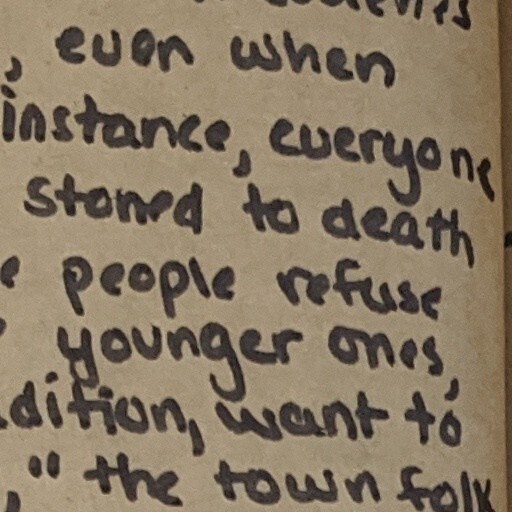 , even when
instance, everyone
stoned to death
people refuse
younger ones,
want to
," the town folk